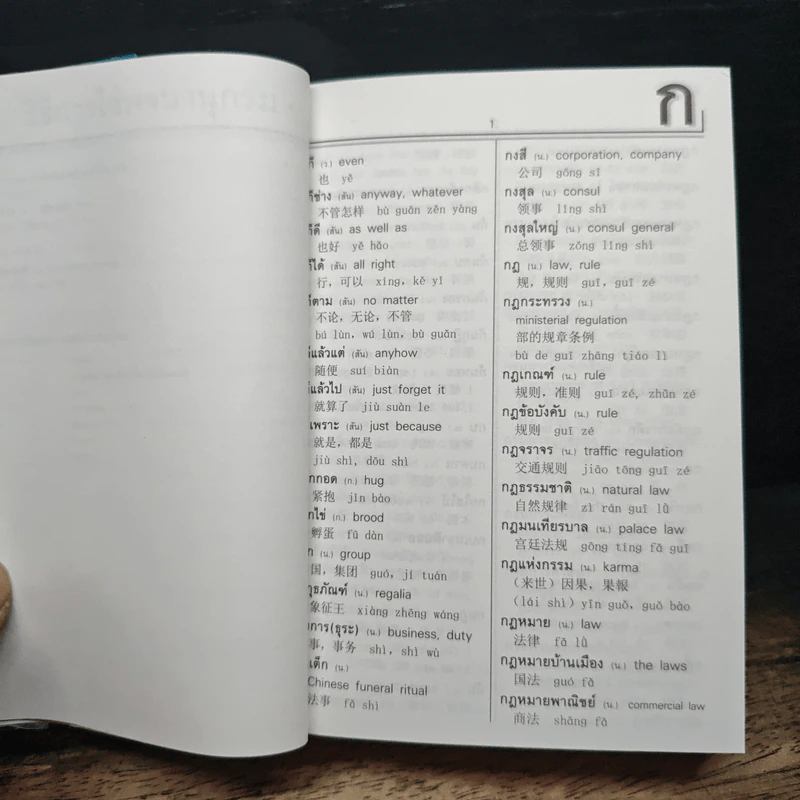 ก
1
ก็ (ว.) even
也 yě
ก็ช่าง (สัน) anyway, whatever
不管怎样 bù guǎn zěn yàng
ก็ดี (สัน) as well as
也好 yě hǎo
ก็ได้ (สัน) all right
行，可以 xíng, kě yǐ
ก็ตาม (สัน) no matter
不论，无论，不管
bú lùn, wú lùn, bù guǎn
ก็แล้วแต่ (สัน) anyhow
随便 suí biàn
ก็แล้วไป (สัน) just forget it
就算了 jiù suàn le
เพราะ (สัน) just because
就是，都是
jiù shì, dōu shì
กกอด (ก.) hug
紧抱 jǐn bào
กไข่ (ก.) brood
孵蛋 fū dàn
ก (น.) group
国，集团 guó, jí tuán
กุธภัณฑ์ (น.) regalia
象征王 xiàng zhēng wáng
งการ(ธุระ) (น.) business, duty
事，事务 shì, shì wù
เต็ก (น.)
Chinese funeral ritual
法事 fǎ shì
กงสี (น.) corporation, company
公司 gōng sī
กงสุล (น.) consul
领事 lǐng shì
กงสุลใหญ่ (น.) consul general
总领事 zǒng lǐng shì
กฎ (น.) law, rule
规，规则 guī, guī zé
กฎกระทรวง (น.)
ministerial regulation
部的规章条例
bù de guī zhāng tiáo lì
กฎเกณฑ์ (น.) rule
规则，准则 guī zé, zhǔn zé
กฎข้อบังคับ (น.) rule
规则 guī zé
กฎจราจร (น.) traffic regulation
交通规则 jiāo tōng guī zé
กฎธรรมชาติ (น.) natural law
自然规律 zì rán guī lǜ
กฎมนเทียรบาล (น.) palace law
宫廷法规 gōng tíng fǎ guī
กฎแห่งกรรม (น.) karma
（来世）因果，果報
（lái shì）yīn guǒ, guǒ bào
กฎหมาย (น.) law
法律 fǎ lǜ
กฎหมายบ้านเมือง (น.) the laws
国法 guó fǎ
กฎหมายพาณิชย์ (น.) commercial law
商法 shāng fǎ